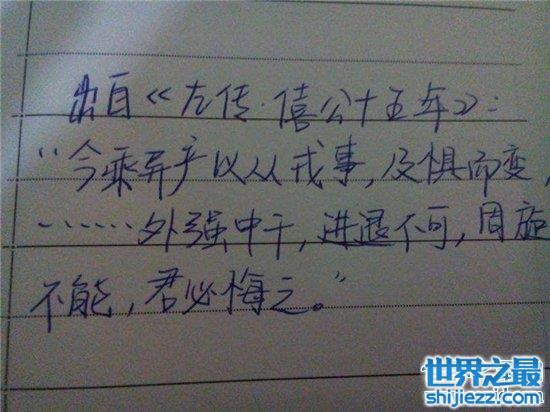 出自《左传·僖公十五年》:
"今乘异产以从戎事,及惧而变,
……外强中干,进退不可,周旋
不能,君必悔之。"
世界之最
shijiezz.com